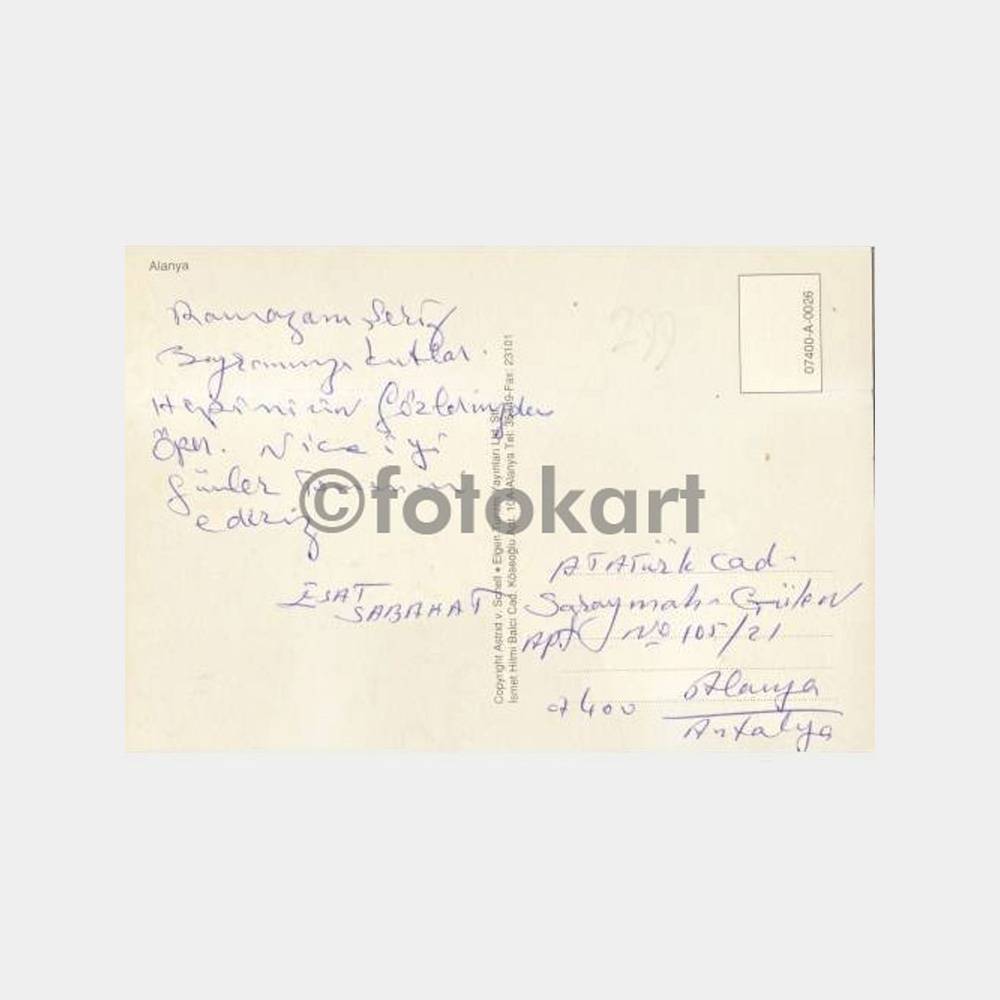 Alanya
Ramazanı Şerif
Bayramınızı kutlar.
Hepinizin Gözlerinizden
Öper. Nice iyi
Günler Temenni
ederiz
ESAT
SABAHAT
©fotokart
Copyright Astrid v. Schell • Elgen Turizm Yayınları Ltd. Şti.
İsmet Hilmi Balcı Cad. Köseoğlu Apt. 16/A-Alanya Tel: 36449-Fax: 23101
07400-A-0026
299
ATATürk cad.
Saray mah. Gülen
APT No 105/21
07400 Alanya
Antalya